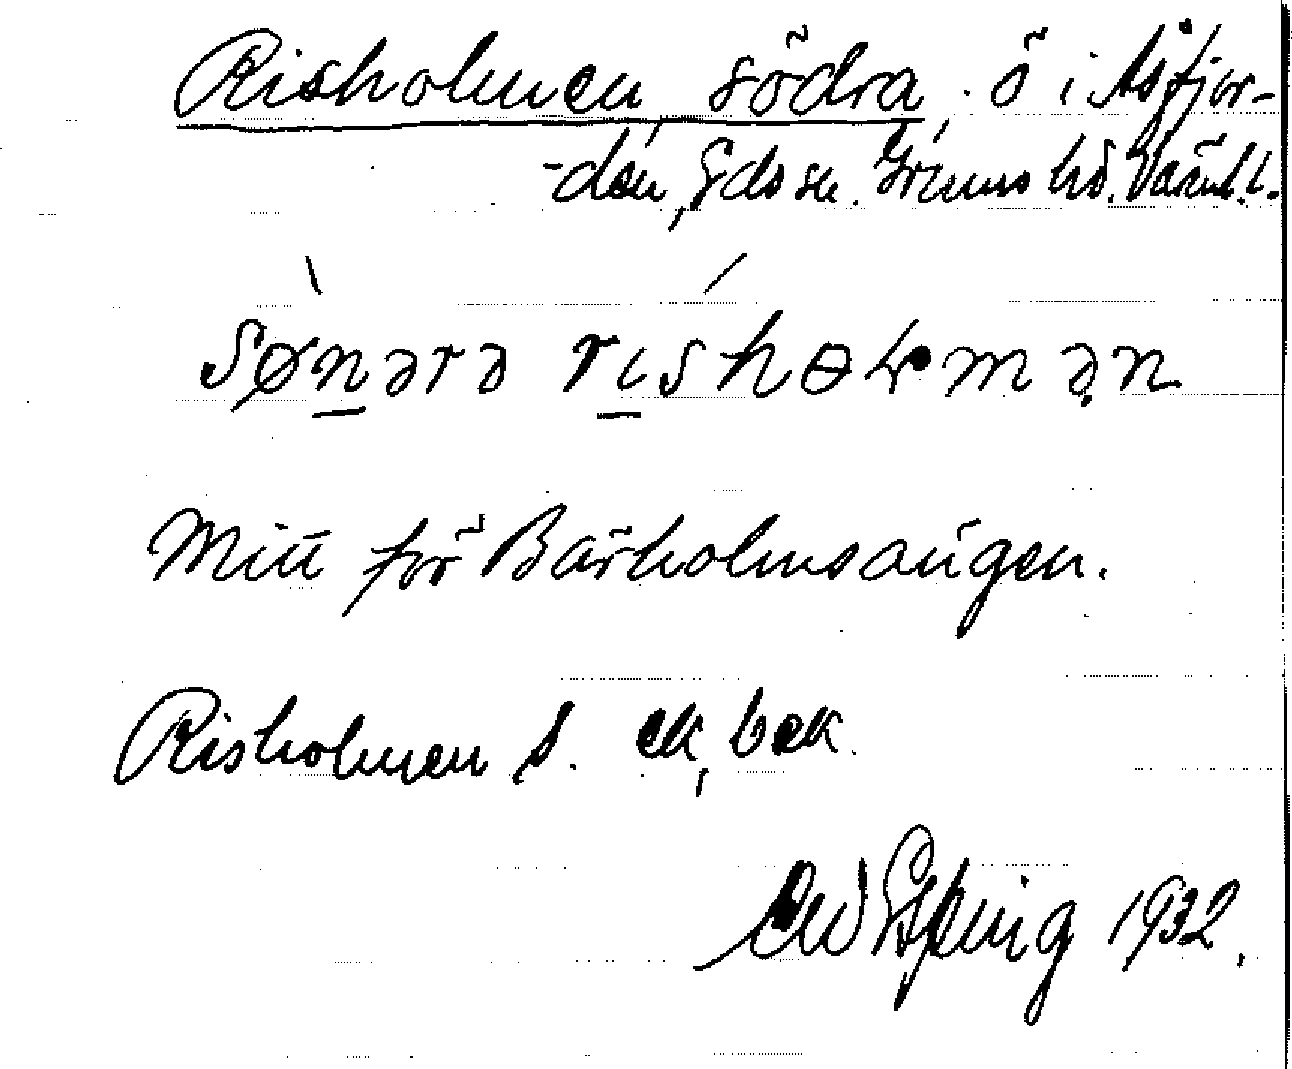 Risholmen, södra, ö i Åsfjor-
-den, Eds sn. Grums hd. Värml.
sønərə risholmən
Mitt för Bärholmsängen.
Risholmen S. ek, bek.
1932.